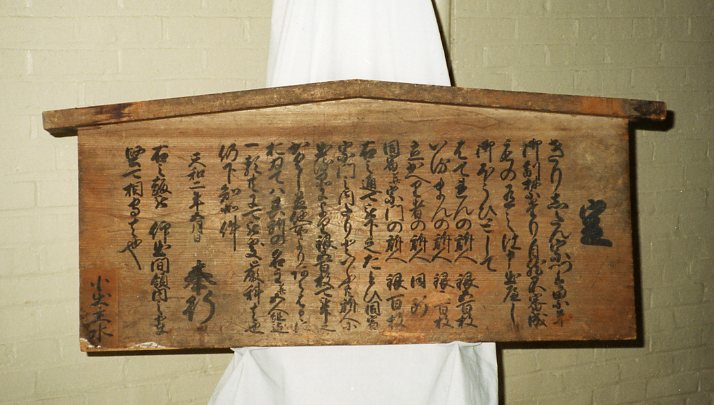 定
きりしたん宗門は累年
御制禁たり自然不審成
もの有之は申出へし
御ほうひとして
はてれんの訴人 銀五百枚
いるまんの訴人 銀三百枚
立かへり者の訴人 同断
同宿并宗門の訴人 銀百枚
右之通下さるへしたとひ同宿
宗門之内たりといふとも訴人
に出る品により銀五百枚下さるへし
かくし置他所よりあらはるゝに
おゐてハ其所の名主并五人組迄
一類共に可被処厳科もの也
仍下知如件
天和二年五月日
奉行
右之趣被 仰出間領内之者
堅可相守者也